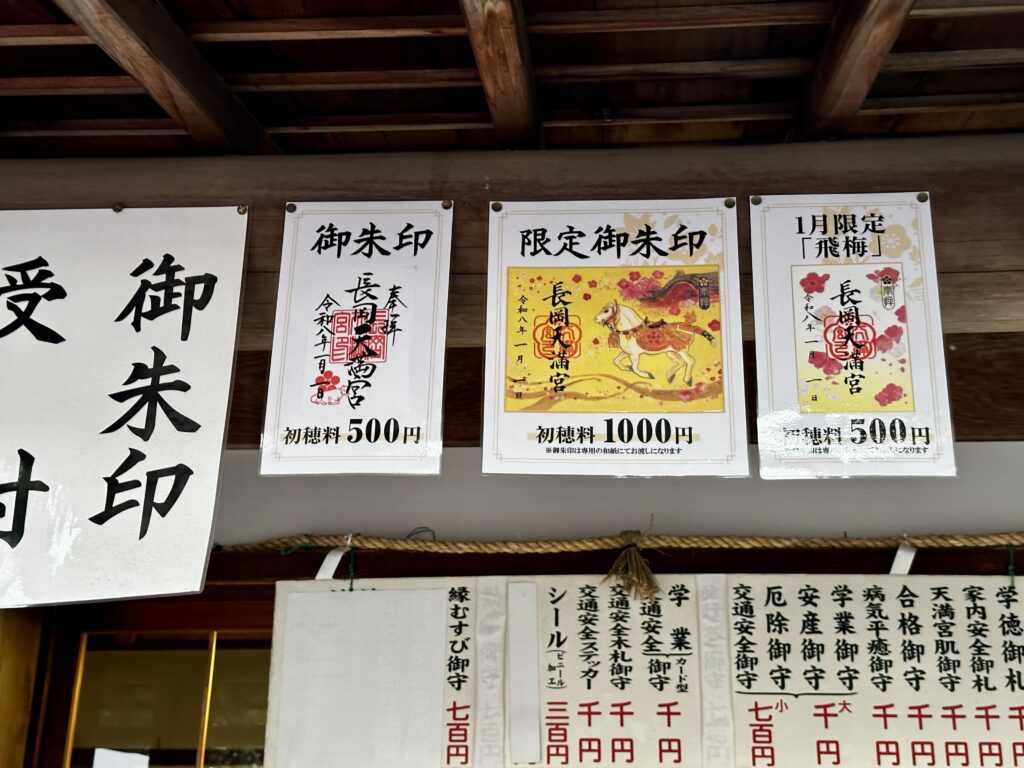 御朱印
受付
御朱印
奉拝
長岡天満宮
令和八年一月一日
初穂料 500円
限定御朱印
奉拝
長岡天満宮
令和八年 一月 一日
初穂料 1000円
※御朱印は専用の和紙にてお渡しになります
1月限定
「飛梅」
奉拝
長岡天満宮
令和八年 一月 一日
初穂料 500円
学徳御札 千円
家内安全御札 千円
天満宮肌御守 千円
合格御守 千円
病気平癒御守 千円
学業御守
安産御守
厄除御守
交通安全御守
大 千円
小 七百円
学業
交通安全
御守 カード型 千円
交通安全木札御守 千円
交通安全ステッカー 千円
シール(ビニール加工) 三百円
縁むすび御守 七百円